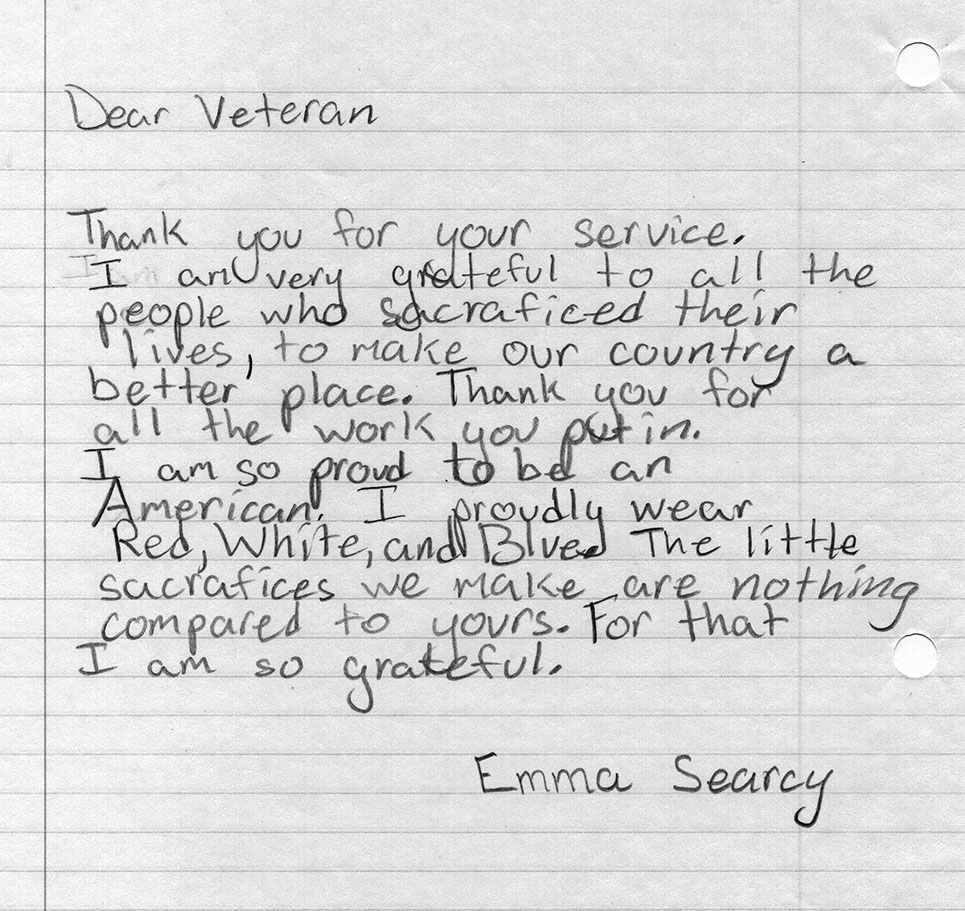 Dear Veteran
Thank you for your service.
I am very grateful to all the
people who sacraficed their
lives, to make our country a
better place. Thank you for
all the work you put in.
I am so proud to be an
American. I proudly wear
Red, White, and Blue. The little
sacrafices we make are nothing
compared to yours. For that
I am so grateful.
Emma Searcy